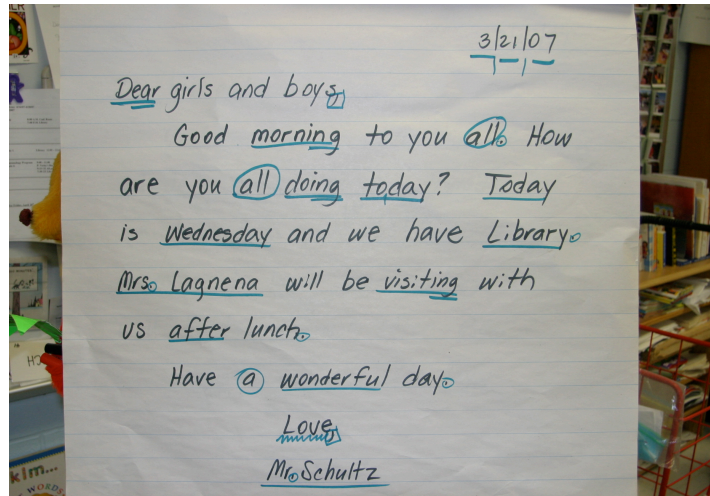 3/21/07
Dear girls and boys,
Good morning to you all. How
are you all doing today? Today
is Wednesday and we have Library.
Mrs. Lagnena will be visiting with
us after lunch.
Have a wonderful day.
Love,
Mr. Schultz
klm...
WORDS